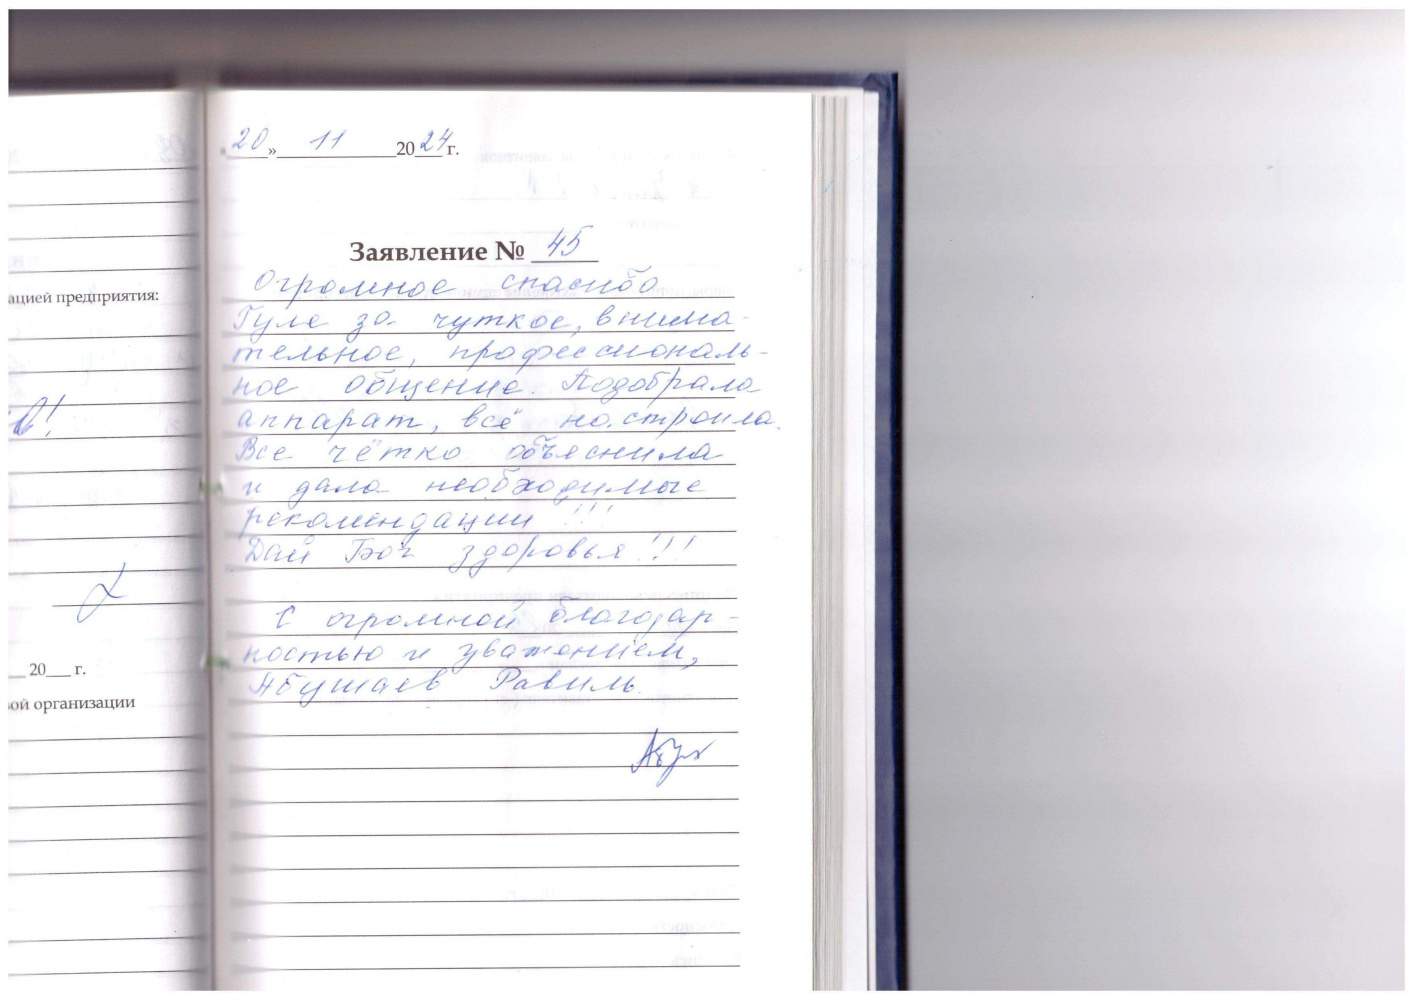 ацией предприятия:
20___ г.
ой организации
«20» 11 2024 г.
Заявление № 45
Огромное спасибо
Гуле за чуткое, внима-
тельное, профессиональ-
ное общение. Подобрала
аппарат, всё настроила.
Все чётко объяснила
и дала необходимые
рекомендации!!!
Дай Бог здоровья!!!
С огромной благодар-
ностью и уважением,
Абушаев Равиль.